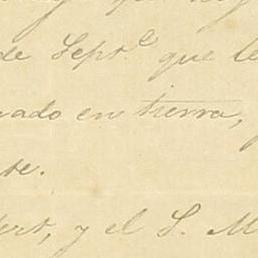 de Septe que le
vado en tierra,
te.
bert, y el S. M